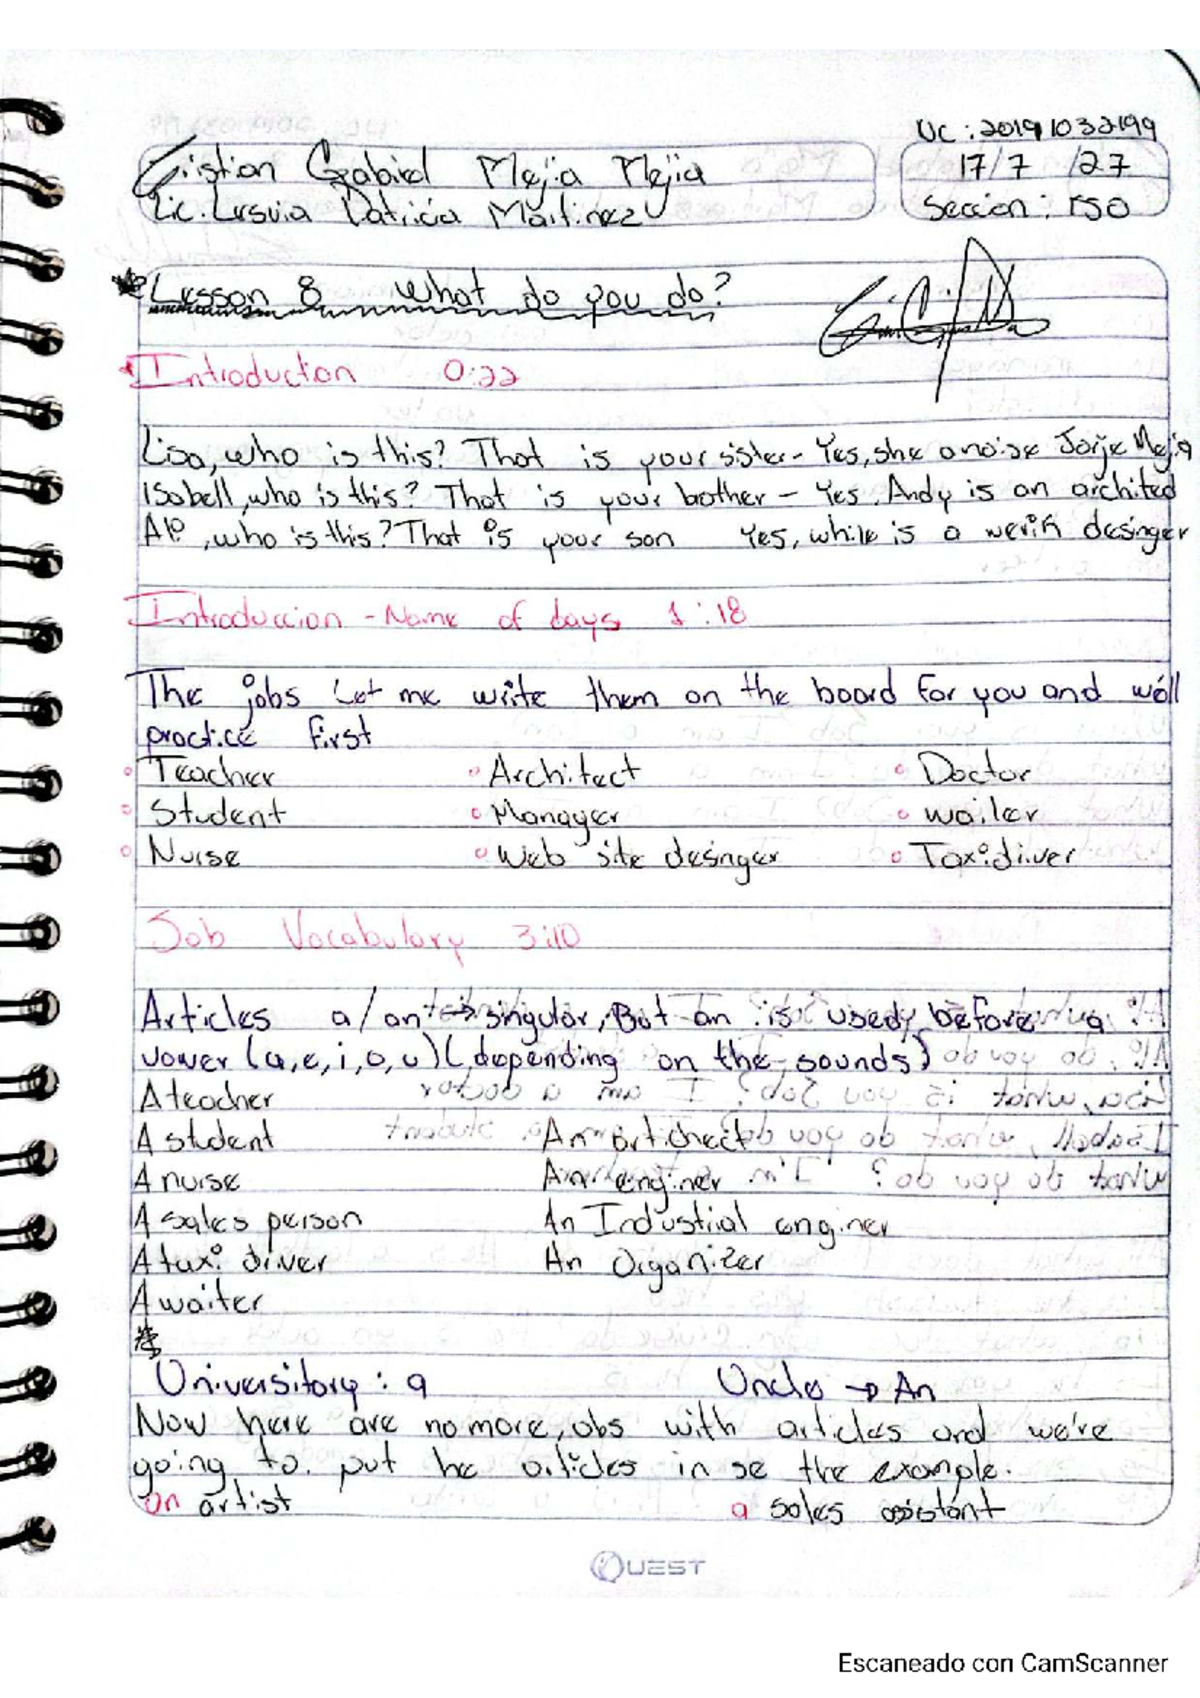 UC: 20191032199
Cristian Gabriel Mejia Mejia
17/7 /27
Lic. Lesvia Patricia Martinez
Seccion: 1500
Lesson 8 What do you do?
Introduction 0:22
Lisa, who is this? That is your sister - Yes, she a Jorje Mejia
Isabell, who is this? That is your brother - Yes. Andy is an archited
Ali, who is this? That is your son Yes, while is a desinger
Introduccion - Name of days 1:18
The jobs Let me write them on the board for you and we'll
practice first
Teacher Architect Doctor
Student Manager wailer
Nurse Web site desinger Taxi diver
Job Vocabulary 3:10
Articles a/an → singular, But an is used before a
vower (a, e, i, o, u) (depending on the sounds)
A teacher
A student An artchect
A nurse An enginer
A sales person An Industrial enginer
A taxi driver An Organizer
A waiter
Universitory: a Uncle → An
Now here are no more, obs with articles and we're
going to put he articles in se the example.
an artist a sales assistant
QUEST
Escaneado con CamScanner